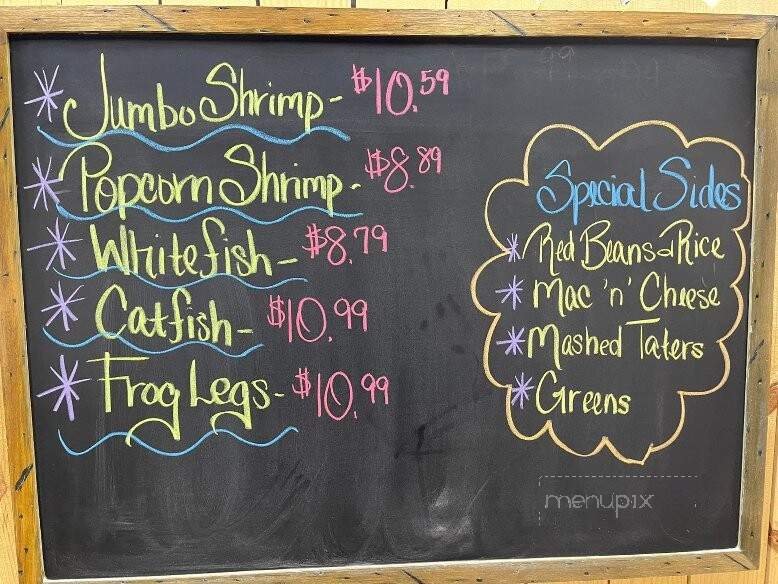 * Jumbo Shrimp - $10.59
* Popcorn Shrimp - $8.89
* Whitefish - $8.79
* Catfish - $10.99
* Frog Legs - $10.99
Special Sides
* Red Beans & Rice
* Mac 'n' Cheese
* Mashed Taters
* Greens
menupix